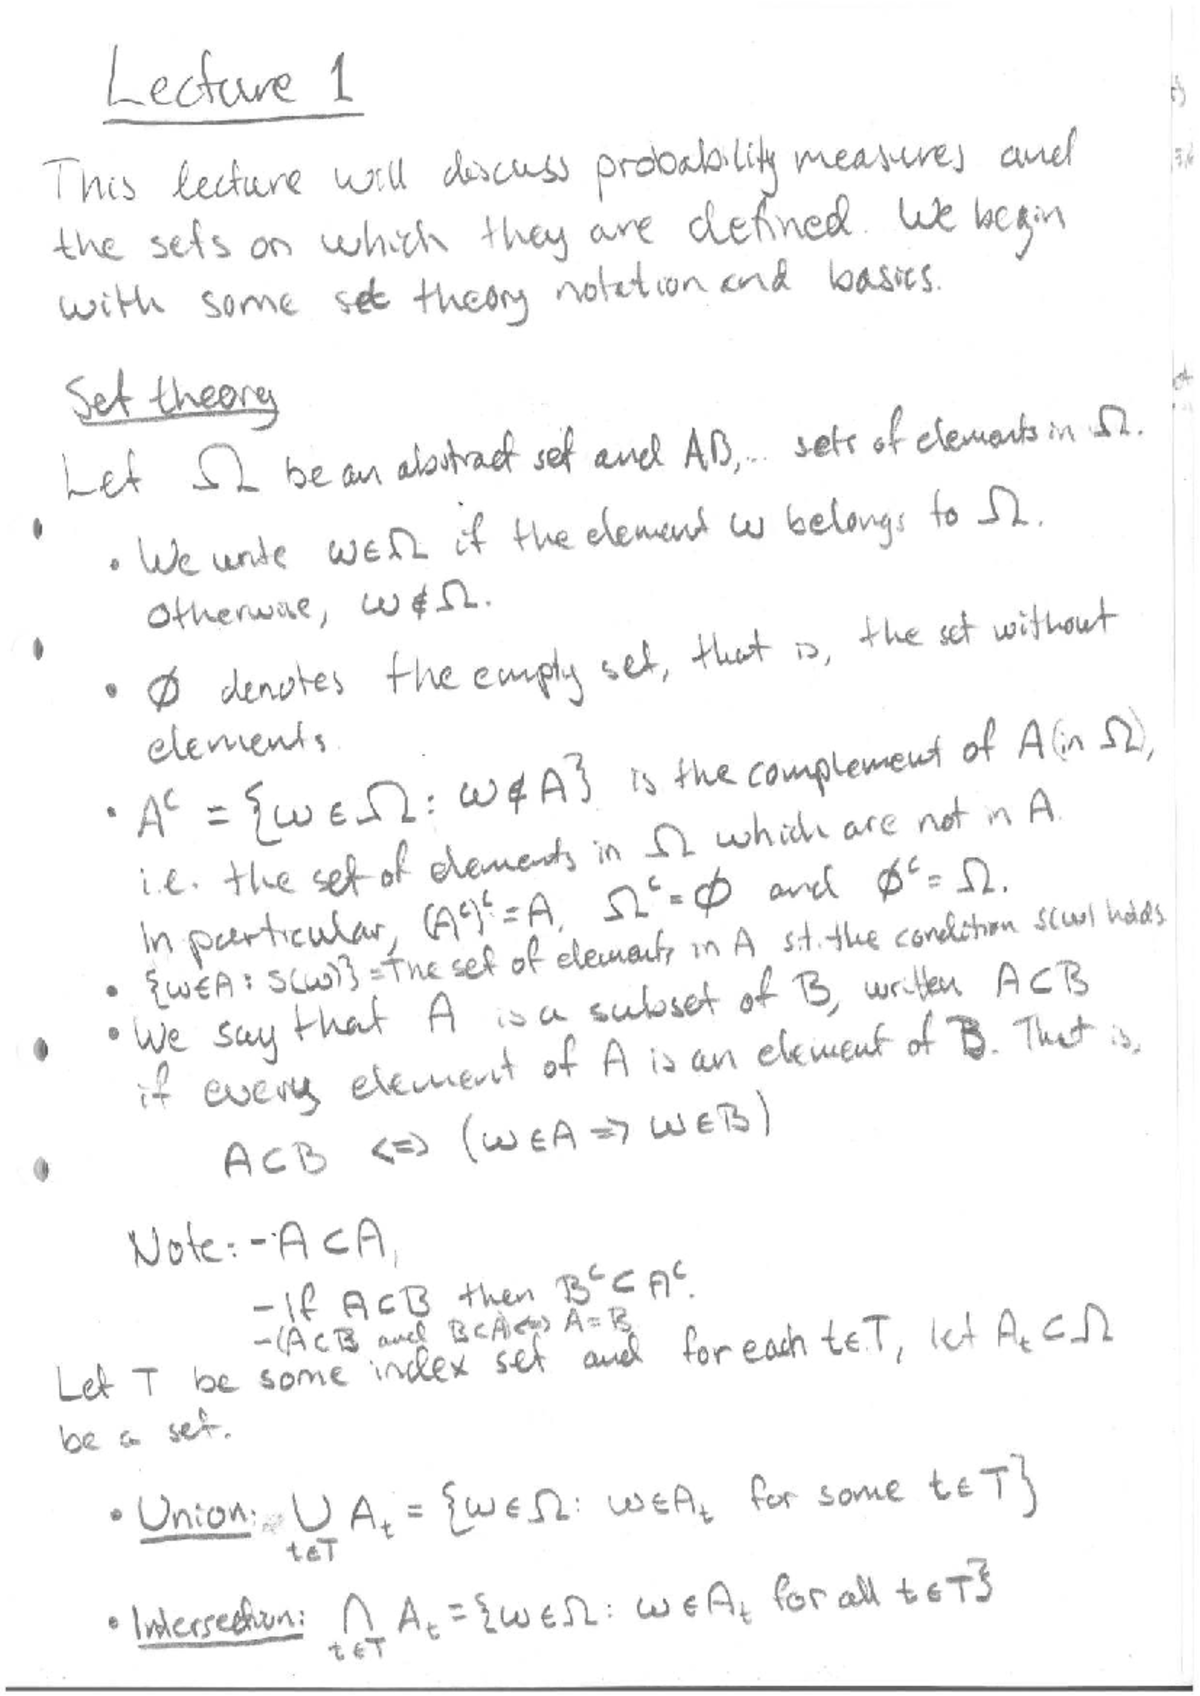 Lecture 1
This lecture will discuss probability measures and
the sets on which they are defined. We begin
with some set theory notation and basics.
Set theory
Let Ω be an abstract set and A,B,... sets of elements in Ω.
• We write ω∈Ω if the element ω belongs to Ω.
Otherwise, ω∉Ω.
• ∅ denotes the empty set, that is, the set without
elements.
• Aᶜ = {ω∈Ω: ω∉A} is the complement of A (in Ω),
i.e. the set of elements in Ω which are not in A.
In particular, (Aᶜ)ᶜ=A, Ωᶜ=∅ and ∅ᶜ=Ω.
• {ω∈A: S(ω)} = The set of elements in A s.t. the condition S(ω) holds
• We say that A is a subset of B, written A⊂B
if every element of A is an element of B. That is,
A⊂B <=> (ω∈A => ω∈B)
Note: - A⊂A,
- If A⊂B then Bᶜ⊂Aᶜ.
- (A⊂B and B⊂A) <=> A=B
Let T be some index set and for each t∈T, let Aₜ⊂Ω
be a set.
• Union: ∪ Aₜ = {ω∈Ω: ω∈Aₜ for some t∈T}
t∈T
• Intersection: ∩ Aₜ = {ω∈Ω: ω∈Aₜ for all t∈T}
t∈T